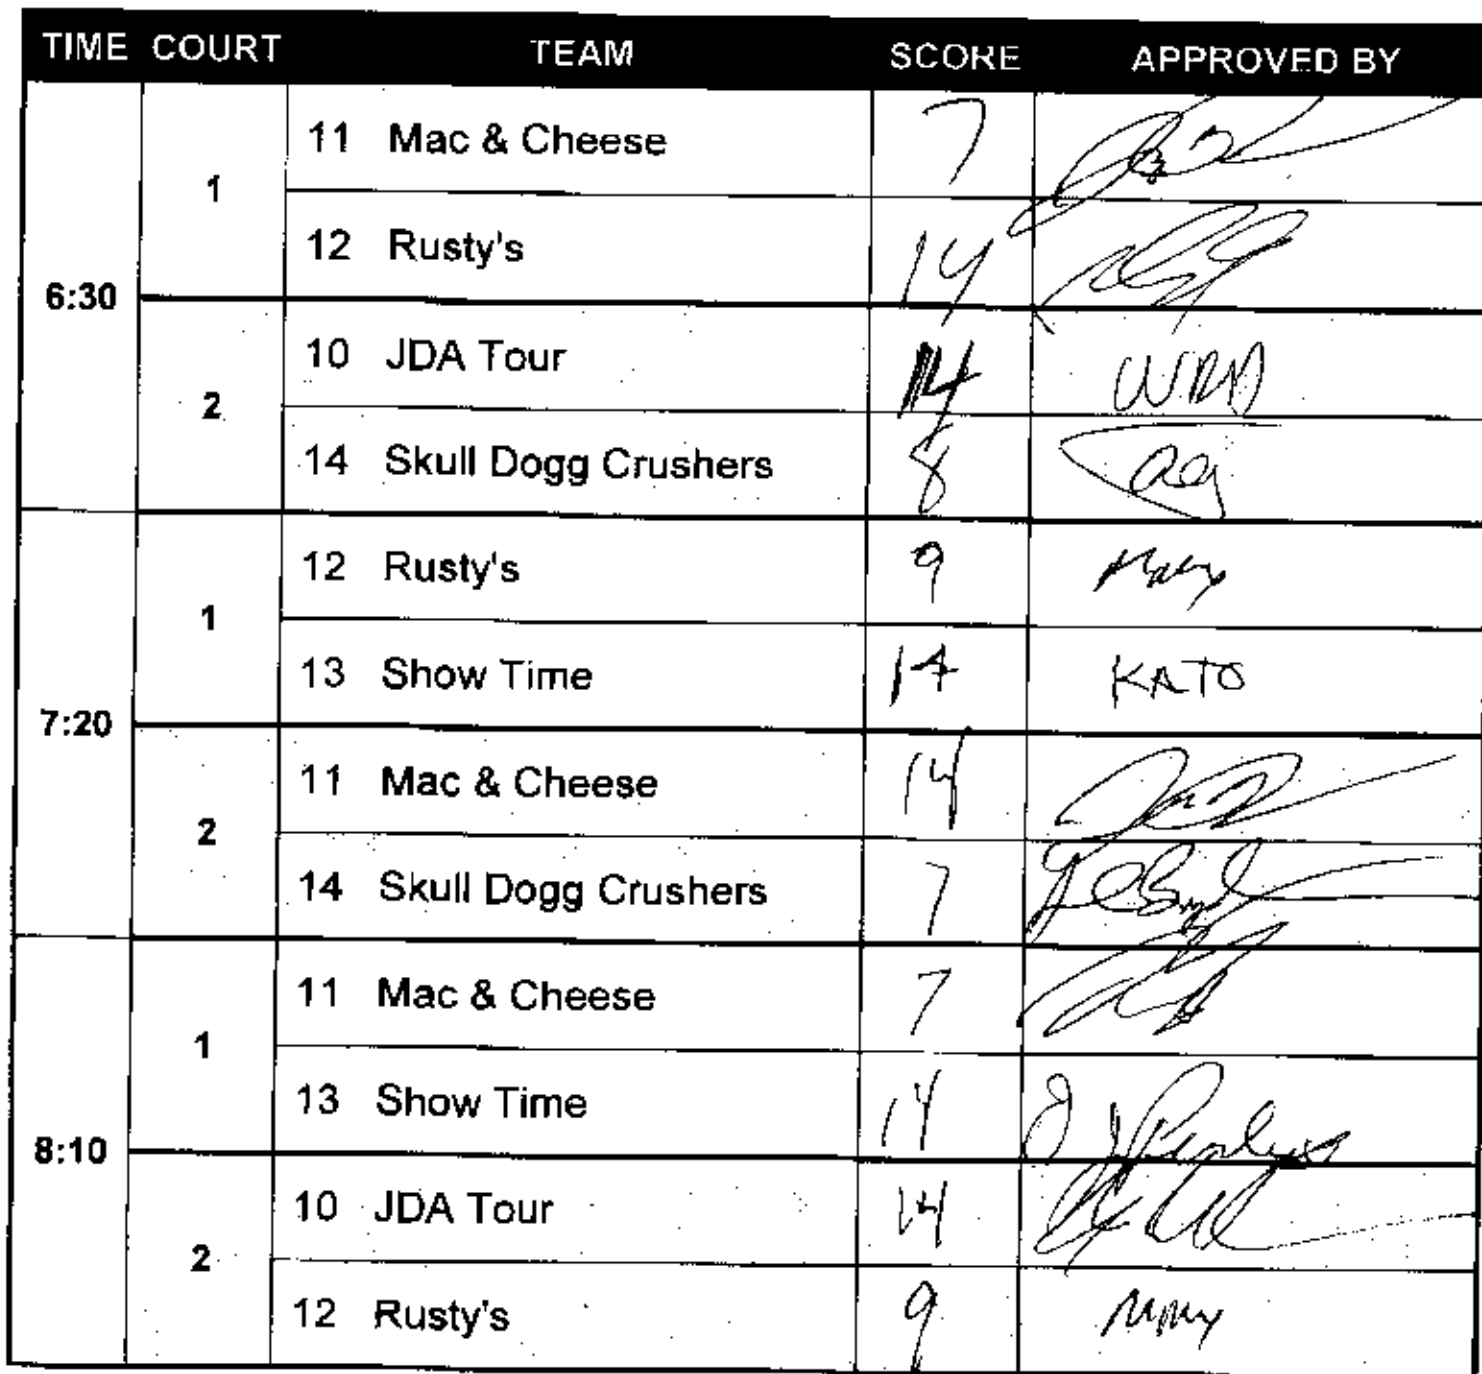 TIME COURT TEAM SCORE APPROVED BY
6:30
1
11 Mac & Cheese 7
12 Rusty's 14
2
10 JDA Tour 14
14 Skull Dogg Crushers 8
7:20
1
12 Rusty's 9
13 Show Time 14 KATO
2
11 Mac & Cheese 14
14 Skull Dogg Crushers 7
8:10
1
11 Mac & Cheese 7
13 Show Time 14
2
10 JDA Tour 14
12 Rusty's 9